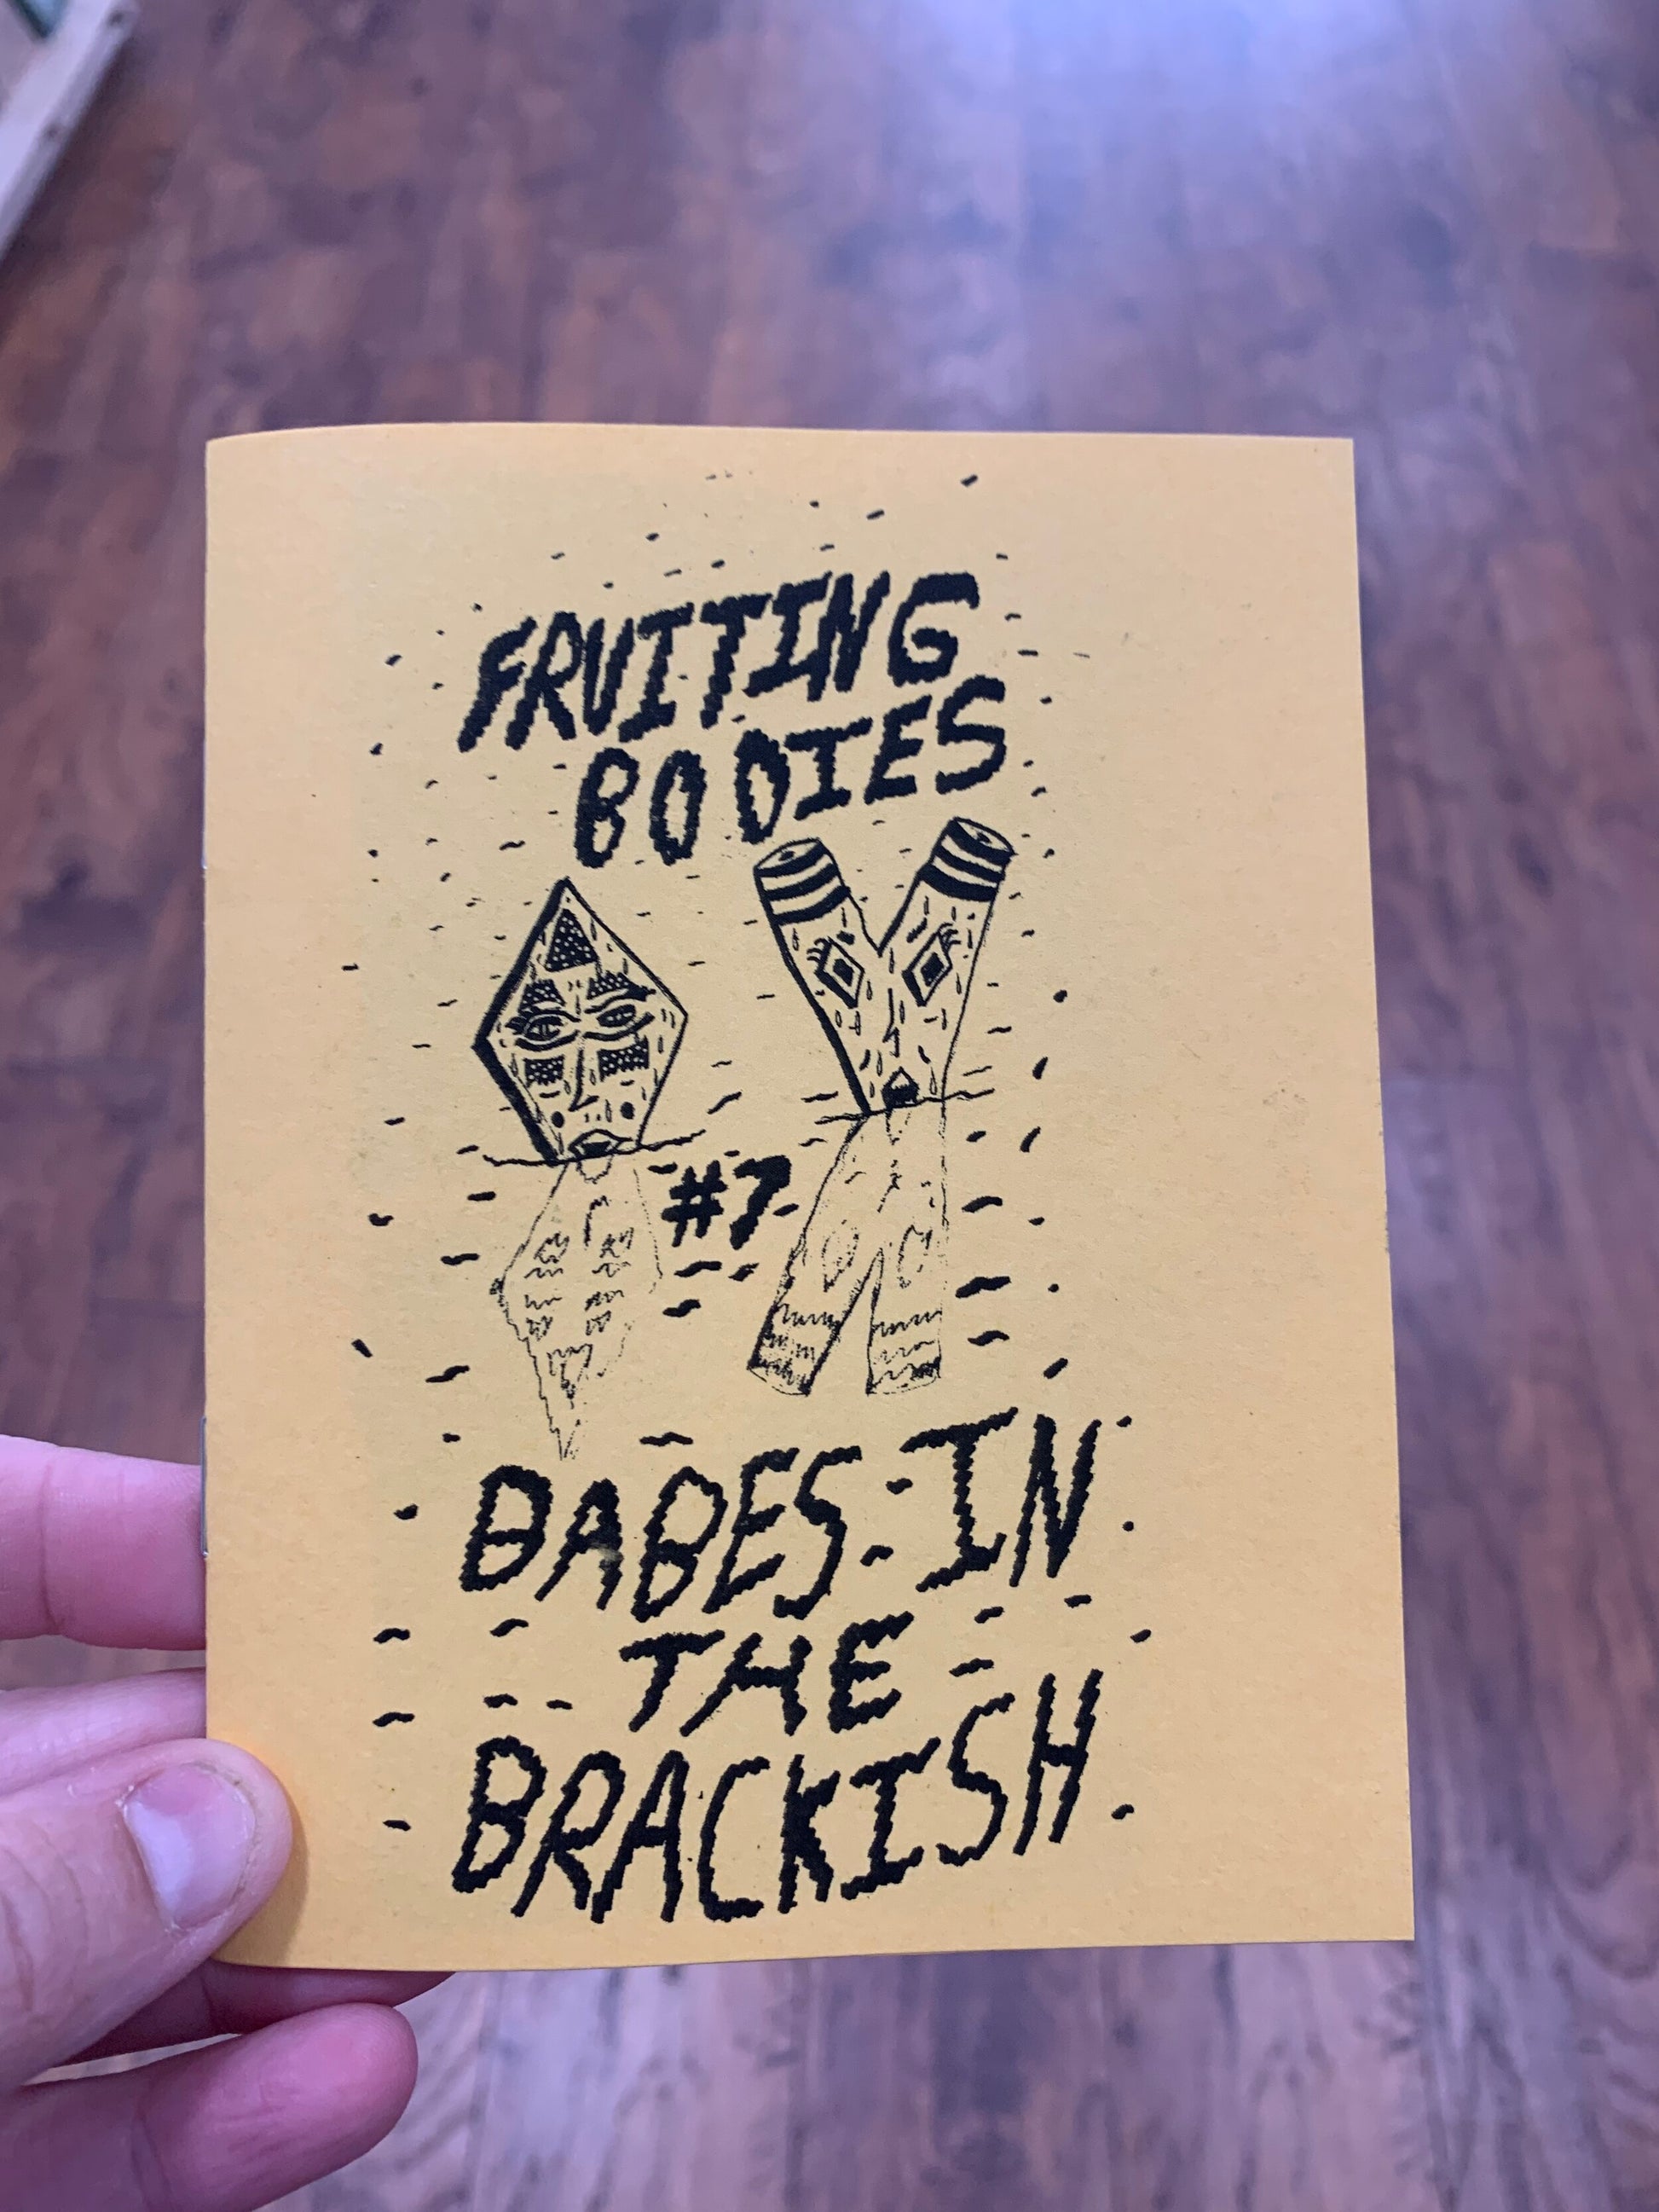 FRUITING
BODIES
#7
BABES-IN
THE
BRACKISH